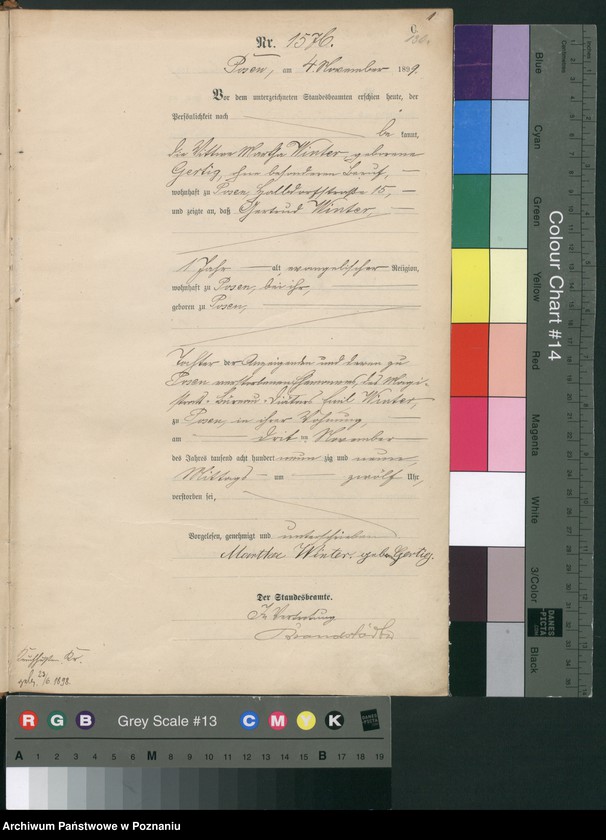 1
Nr. 1576.
Posen, am 4. November 1899.
Vor dem unterzeichneten Standesbeamten erschien heute, der
Persönlichkeit nach
be kannt,
die Wittwe Martha Winter, geborene
Gertig, ohne besonderen Beruf,
wohnhaft zu Posen, Halbdorfstraße 15,
und zeigte an, daß Gertrud Winter,
1 Jahr alt evangelischer Religion,
wohnhaft zu Posen, bei ihr,
geboren zu Posen,
Tochter der Anzeigenden und deren zu
Posen verstorbenen Ehemannes, des Magi-
strats-Büreau-Diätars Emil Winter,
zu Posen, in ihrer Wohnung,
am dritten November
des Jahres tausend acht hundert neunzig und neun,
Mittags um zwölf Uhr,
verstorben sei,
Vorgelesen, genehmigt und unterschrieben
Martha Winter, geb. Gertig.
Der Standesbeamte.
In Vertretung
1898.
Colour Chart #14
Blue
Cyan
Green
Yellow
Red
Magenta
White
3/Color
Black
Centimetres
DANES
PICTA
R G B Grey Scale #13 C M Y K
A 1 2 3 4 5 6 M 8 9 10 11 12 13 14 15 B 17 18 19
Archiwum Państwowe w Poznaniu